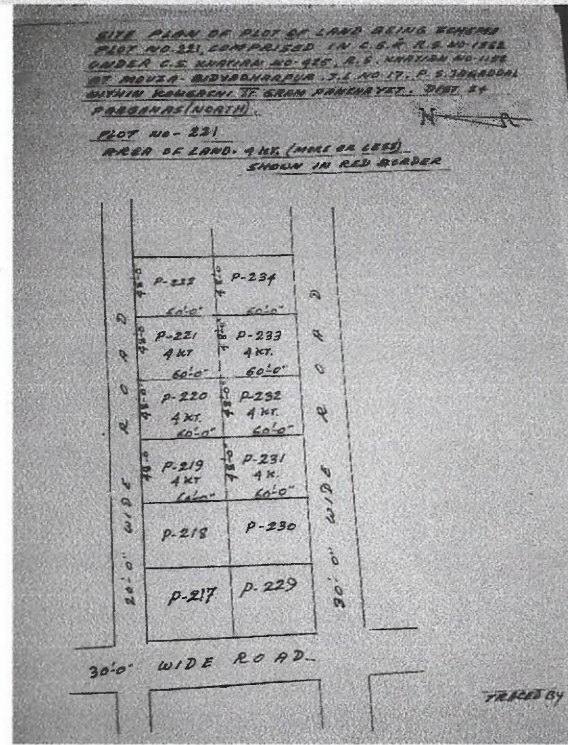 SITE PLAN OF PLOT OF LAND BEING SCHEME
PLOT NO-221, COMPRISED IN C.S. & R.S. NO-1252
UNDER C.S. KHATIAN NO-425, R.S. KHATIAN NO-
AT MOUZA- BIDYADHARPUR, J.L. NO 17. P.S. JAGADDAL
WITHIN KAUGACHI II GRAM PANCHAYET. DIST. 24
PARGANAS (NORTH).
N
PLOT NO - 221
AREA OF LAND. 4 KT. (MORE OR LESS)
SHOWN IN RED BORDER
48'-0 P-222 48'-0 P-234
60'-0" 60'-0"
48'-0 P-221 48'-0 P-233
4 KT 4 KT.
60'-0" 60'-0"
48'-0 P-220 48'-0 P-232
4 KT. 4 KT.
60'-0" 60'-0"
48'-0 P-219 48'-0" P-231
4 KT 4 K.
60'-0" 60'-0"
P-218 P-230
P-217 P-229
20'-0" WIDE ROAD
30'-0" WIDE ROAD
30'-0" WIDE ROAD
TRACED BY